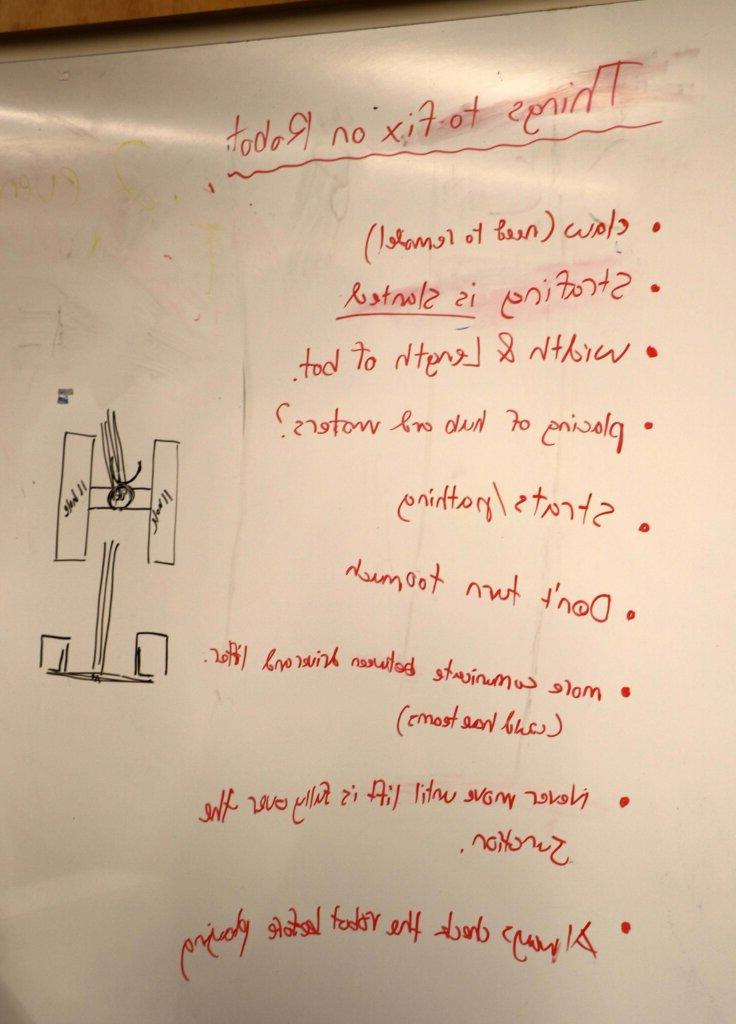 Things to Fix on Robot
• claw (need to remodel)
• Strafing is slanted
• width & Length of bot.
• placing of hub and motors?
• Strats/pathing
• Don't turn too much
• more communicate between driver and lifter.
(could have teams)
• Never move until lift is fully over the
Junction.
• Always check the robot before playing